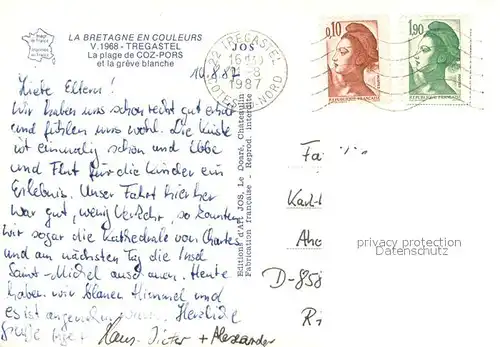 LA BRETAGNE EN COULEURS
V.1968 - TREGASTEL
La plage de COZ-PORS
et la grève blanche
JOS
22 TREGASTEL
1987
COTES-DU-NORD
0,10
REPUBLIQUE FRANÇAISE
1,90
REPUBLIQUE FRANÇAISE
10.8.87
Liebe Eltern!
Wir haben uns schon recht gut erholt
und fühlen uns wohl. Die Küste
ist einmalig schön und Ebbe
und Flut für die Kinder ein
Erlebnis. Unser Fahrt hierher
war gut, wenig Verkehr, so konnten
wir sogar die Kathedrale von Chartres
und am nächsten Tag die Insel
Saint-Michel anschauen. Heute
haben wir blauen Himmel und
es ist angenehm warm. Herzliche
Grüße
Hans-Dieter + Alexander
Editions d'Art JOS, Le Doaré, Chateaulin
Fabrication française - Reprod. interdite
Fa
Karl
D-858
privacy protection
Datenschutz